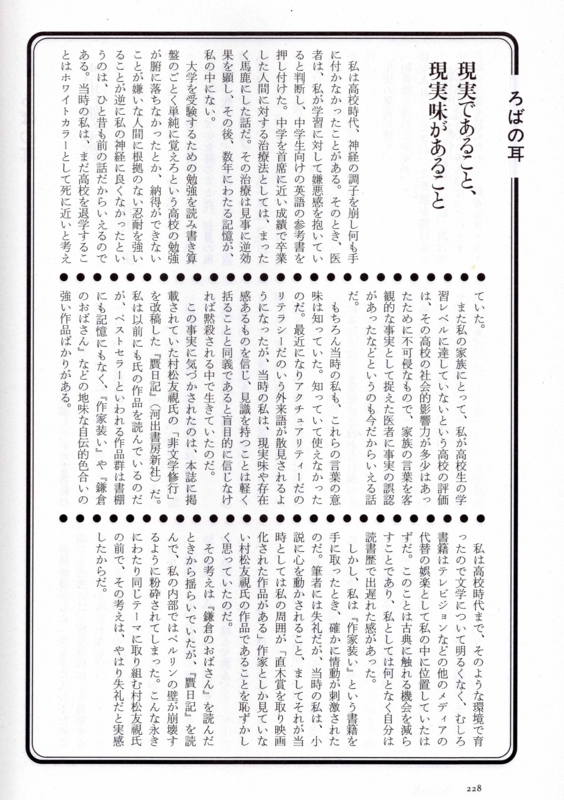 ろばの耳
現実であること、
現実味があること
　私は高校時代、神経の調子を崩し何も手
に付かなかったことがある。そのとき、医
者は、私が学習に対して嫌悪感を抱いてい
ると判断し、中学生向けの英語の参考書を
押し付けた。中学を首席に近い成績で卒業
した人間に対する治療法としては、まった
く馬鹿にした話だ。その治療は見事に逆効
果を顕し、その後、数年にわたる記憶が、
私の中にない。
　大学を受験するための勉強を読み書き算
盤のごとく単純に覚えろという高校の勉強
が腑に落ちなかったとか、納得ができない
ことが嫌いな人間に根拠のない忍耐を強い
ることが逆に私の神経に良くなかったとい
うのは、ひと昔も前の話だからいえるので
ある。当時の私は、まだ高校を退学するこ
とはホワイトカラーとして死に近いと考え
ていた。
　また私の家族にとって、私が高校生の学
習レベルに達していないという高校の評価
は、その高校の社会的影響力が多少はあっ
たために不可侵なもので、家族の言葉を客
観的な事実として捉えた医者に事実の誤認
があったなどというのも今だからいえる話
だ。
　もちろん当時の私も、これらの言葉の意
味は知っていた。知っていて使えなかった
のだ。最近になりアクチュアリティーだの
リテラシーだのいう外来語が散見されるよ
うになったが、当時の私は、現実味や存在
感あるものを信じ、見識を持つことは軽く
括ることと同義であると盲目的に信じなけ
れば黙殺される中で生きていたのだ。
　この事実に気づかされたのは、本誌に掲
載されていた村松友視氏の「非文学修行」
を改稿した『贋日記』（河出書房新社）だ。
私は以前にも氏の作品を読んでいるのだ
が、ベストセラーといわれる作品群は書棚
にも記憶にもなく、『作家装い』や『鎌倉
のおばさん』などの地味な自伝的色合いの
強い作品ばかりがある。
　私は高校時代まで、そのような環境で育
ったので文学について明るくなく、むしろ
書籍はテレビジョンなどの他のメディアの
代替の娯楽として私の中に位置していたは
ずだ。このことは古典に触れる機会を減ら
すことであり、私としては何となく自分は
読書歴で出遅れた感があった。
　しかし、私は『作家装い』という書籍を
手に取ったとき、確かに情動が刺激された
のだ。筆者には失礼だが、当時の私は、小
説に心を動かされること、ましてそれが当
時としては私の周囲が「直木賞を取り映画
化された作品がある」作家としか見ていな
い村松友視氏の作品であることを恥ずかし
く思っていたのだ。
　その考えは『鎌倉のおばさん』を読んだ
ときから揺らいでいたが、『贋日記』を読
んで、私の内部ではベルリンの壁が崩壊す
るように粉砕されてしまった。こんな永き
にわたり同じテーマに取り組む村松友視氏
の前で、その考えは、やはり失礼だと実感
したからだ。
228